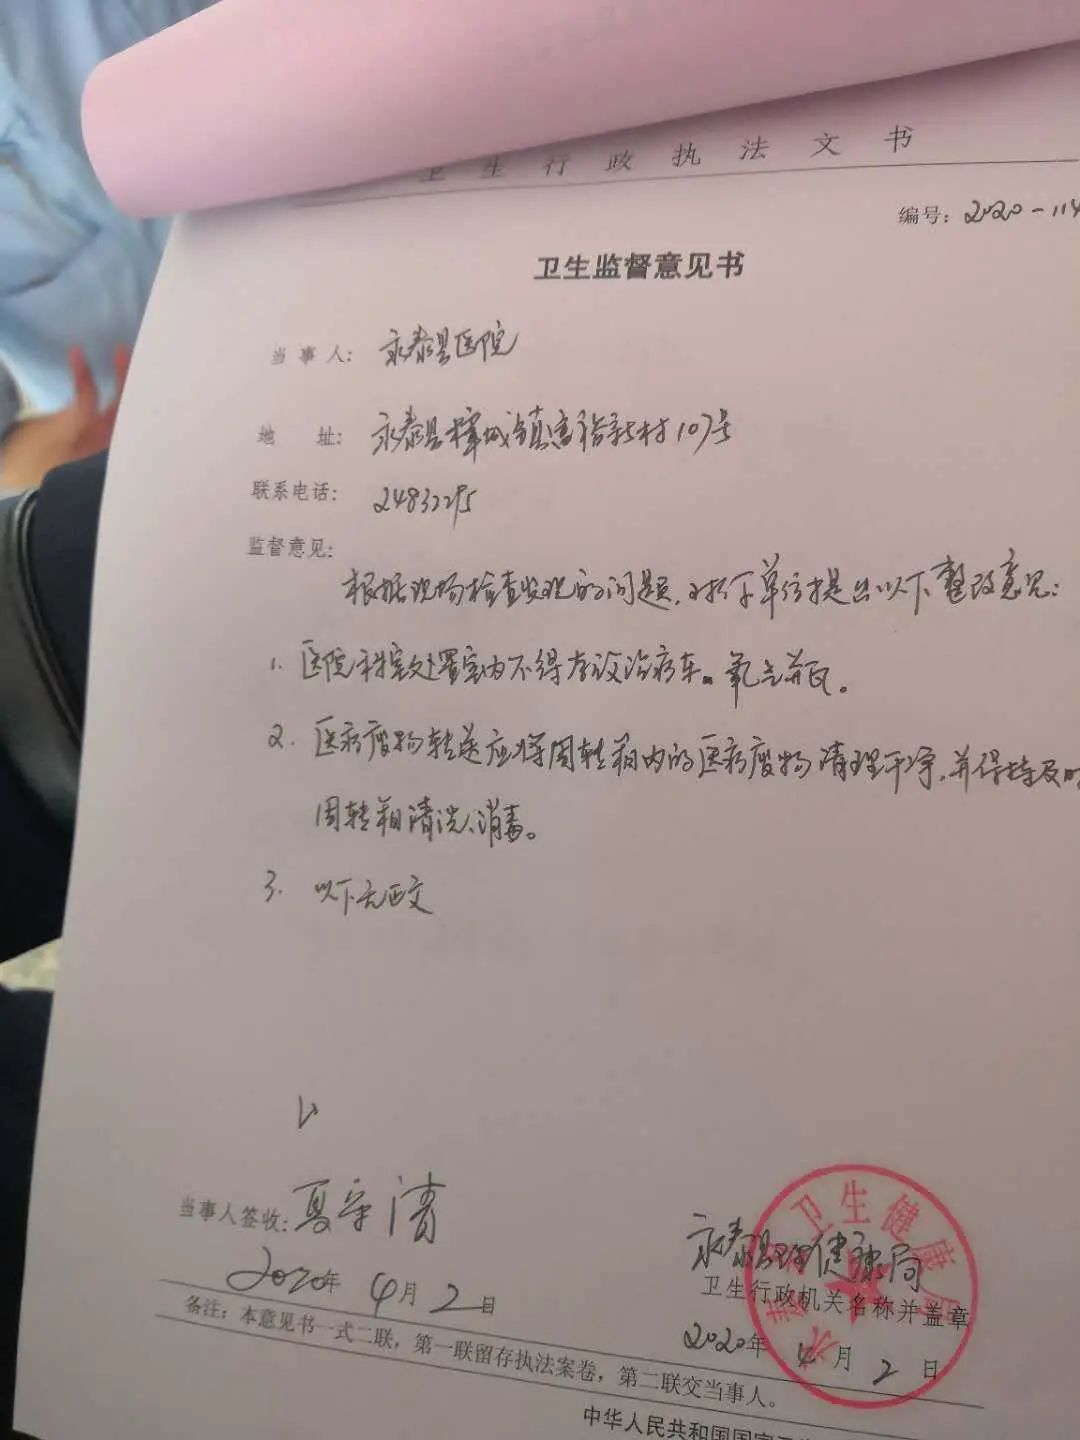 卫生行政执法文书
编号：2020-114
卫生监督意见书
当事人：永泰县医院
地址：永泰县樟城镇富裕新村107号
联系电话：24832295
监督意见：
根据现场检查发现的问题，对你单位提出以下整改意见：
1. 医院科室处置室内不得存设治疗车。氧气并瓦。
2. 医疗废物转送应将周转箱内的医疗废物清理干净，并保持及时
周转箱清洗、消毒。
3. 以下无正文
当事人签收：夏守清
2020年4月2日
永泰县卫生健康局
永泰县卫生健康局
卫生行政机关名称并盖章
2020年4月2日
备注：本意见书一式二联，第一联留存执法案卷，第二联交当事人。
中华人民共和国国家卫